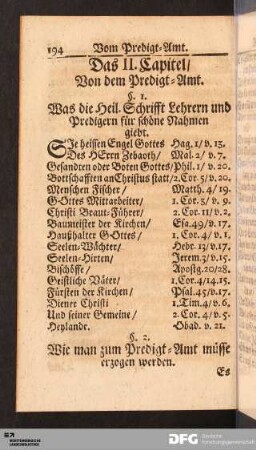 194 Vom Predigt-Amt.
Das II. Capitel/
Von dem Predigt-Amt.
§. 1.
Was die Heil. Schrifft Lehrern und
Predigern für schöne Nahmen
giebt.
SIe heissen Engel Gottes Hag. 1/ v. 13.
Des HErrn Zebaoth/ Mal. 2/ v. 7.
Gesandten oder Boten Gottes/ Phil. 1/ v. 20.
Bottschafften an Christus statt/ 2. Cor 5/ v. 20.
Menschen Fischer/ Matth. 4/ 19.
GOttes Mitarbeiter/ 1. Cor. 3/ v. 9.
Christi Braut-Führer/ 2. Cor. 11/ v. 2.
Baumeister der Kirchen/ Esa. 49/ v. 17.
Haußhalter GOttes/ 1. Cor. 4/ v. 1.
Seelen-Wächter/ Hebr. 13/ v. 17.
Seelen-Hirten/ Jerem. 3/ v. 15.
Bischöffe/ Apostg. 20/ 28.
Geistliche Väter/ 1. Cor. 4/ 14. 15.
Fürsten der Kirchen/ Psal. 45/ v. 17.
Diener Christi 1. Tim. 4/ v. 6.
Und seiner Gemeine/ 2. Cor. 4/ v. 5.
Heylande. Obad. v. 21.
§. 2.
Wie man zum Predigt-Amt müsse
erzogen werden.
Es
DFG Deutsche
Forschungsgemeinschaft